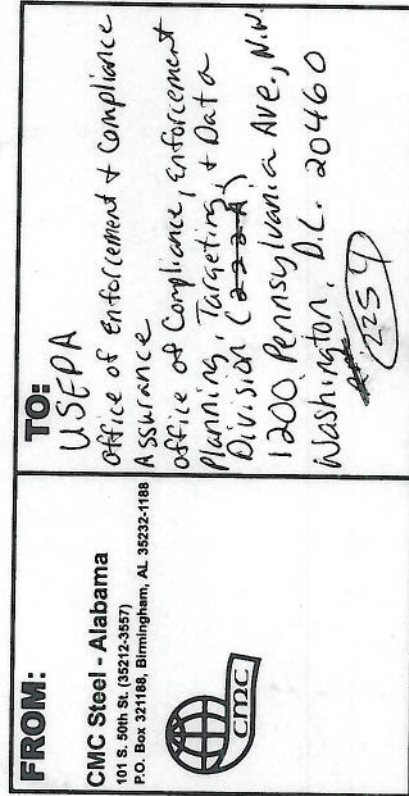 FROM:
CMC Steel - Alabama
101 S. 50th St. (35212-3557)
P.O. Box 321188, Birmingham, AL 35232-1188
cmc
TO:
USEPA
Office of Enforcement + Compliance
Assurance
Office of Compliance, Enforcement
Planning, Targeting, + Data
Division (222A)
1200 Pennsylvania Ave., N.W.
Washington, D.C. 20460
225 9